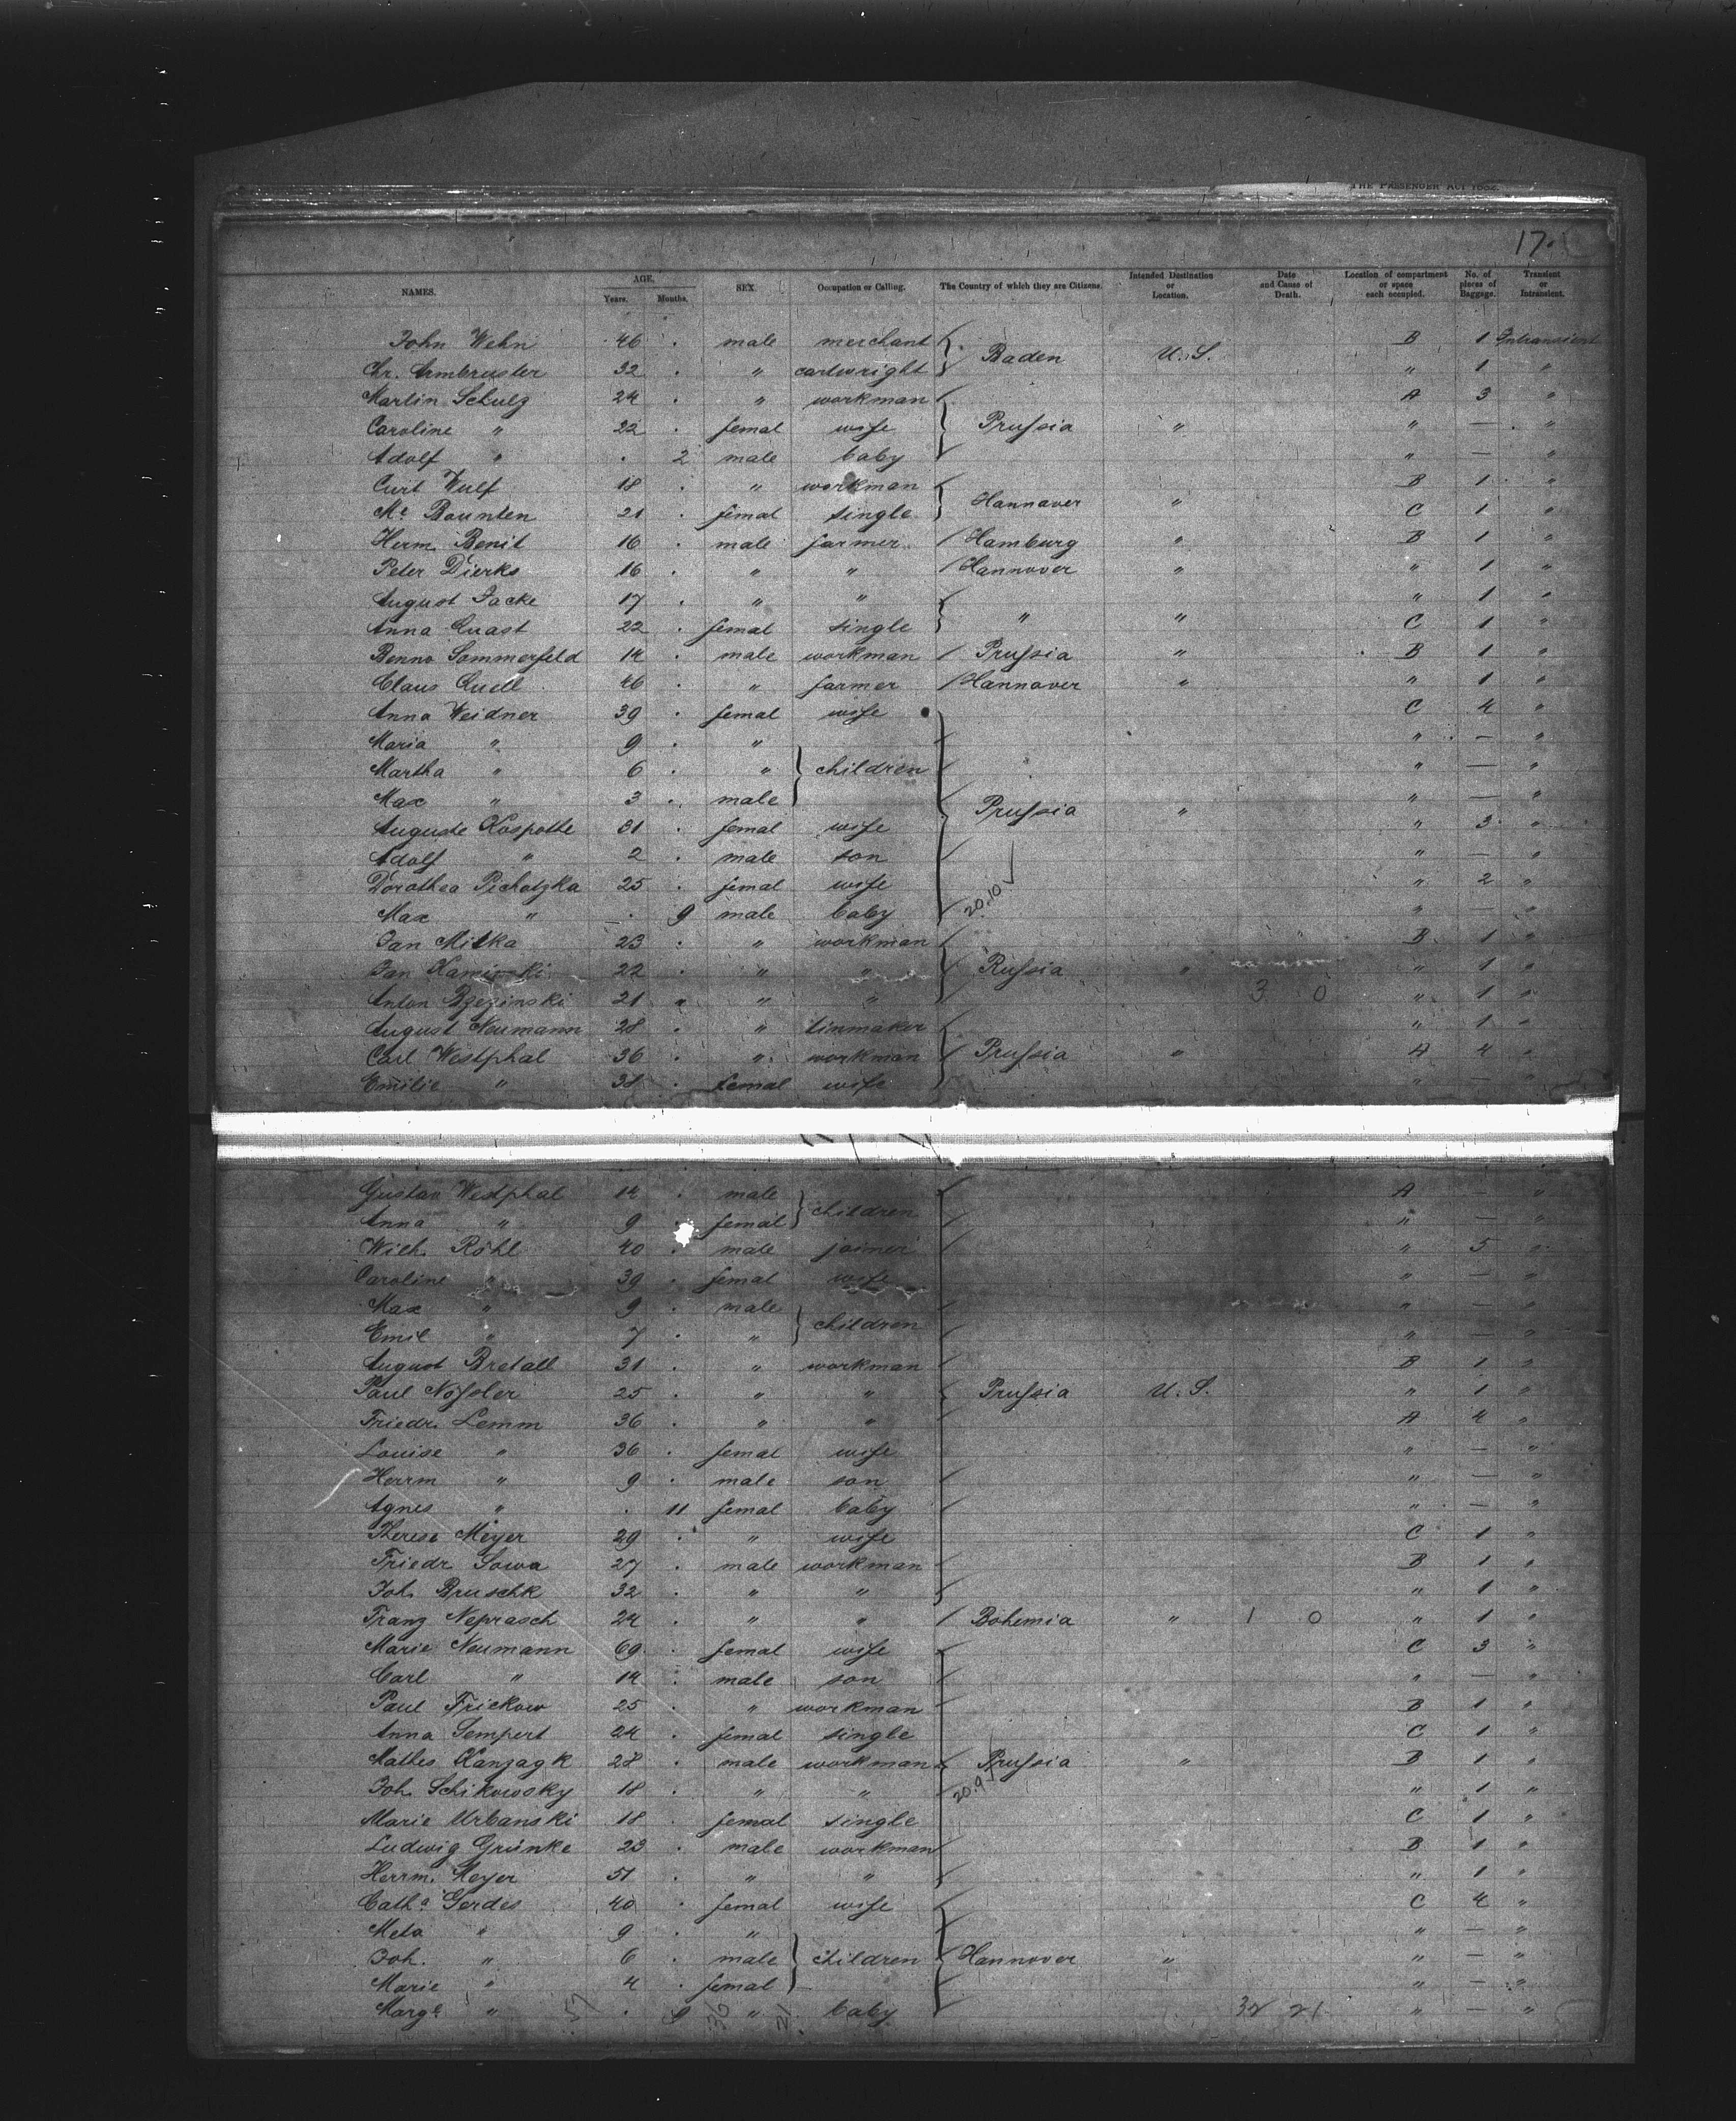 THE PASSENGER ACT 1882.
17.
NAMES. AGE. Years. Months. SEX. Occupation or Calling. The Country of which they are Citizens. Intended Destination or Location. Date and Cause of Death. Location of compartment or space each occupied. No. of pieces of Baggage. Transient or Intransient.
John Wehn 46 . male merchant Baden U.S. B 1 Intransient
Chr. Armbruster 32 . " cartwright " 1 "
Martin Schulz 24 . " workman A 3 "
Caroline " 22 . femal wife Prussia " " — "
Adolf " . 2 male baby " — "
Curt Wulf 18 . " workman B 1 "
Me Baunten 21 . femal single Hannover " C 1 "
Herm. Benit 16 . male farmer Hamburg " B 1 "
Peter Dierks 16 . " " Hannover " " 1 "
August Jacke 17 . " " " 1 "
Anna Quast 22 . femal single " " C 1 "
Benno Sommerfeld 14 . male workman Prussia " B 1 "
Claus Quell 46 . " farmer Hannover " " 1 "
Anna Weidner 39 . femal wife C 4 "
Maria " 9 . " " — "
Martha " 6 . " children " — "
Max " 3 . male Prussia " " — "
Auguste Kospothe 31 . femal wife " 3 "
Adolf " 2 . male son " — "
Dorothea Pichotzka 25 . femal wife " 2 "
Max " . 9 male baby 20.10 " — "
Jan Milka 23 . " workman B 1 "
Jan Kaminski 22 . " " Russia " " 1 "
Anton Bzezinski 21 . " " 3 0 " 1 "
August Neumann 28 . " tinmaker " 1 "
Carl Westphal 36 . " workman Prussia " A 4 "
Emilie " 38 . femal wife " — "
Gustav Westphal 14 . male children A — "
Anna " 9 . femal " — "
Wilh. Röhl 40 . male joiner " 5 "
Caroline " 39 . femal wife " — "
Max " 9 . male children " — "
Emil " 7 . " " — "
August Bretall 31 . " workman B 1 "
Paul Nossler 25 . " " Prussia U.S. " 1 "
Friedr. Lemm 36 . " " A 4 "
Louise " 36 . femal wife " — "
Herrm " 9 . male son " — "
Agnes " . 11 femal baby " — "
Therese Meyer 29 . " wife C 1 "
Friedr Sowa 27 . male workman B 1 "
Joh. Bruschk 32 . " " " 1 "
Franz Neprasch 24 . " " Bohemia " 1 0 " 1 "
Marie Neumann 69 . femal wife C 3 "
Carl " 14 . male son " — "
Paul Frickow 25 . " workman B 1 "
Anna Sempert 24 . femal single C 1 "
Mathes Kanzagk 28 . male workman Prussia " B 1 "
Joh. Schikowsky 18 . " " 20.9 " 1 "
Marie Urbanski 18 . femal single C 1 "
Ludwig Grünke 23 . male workman B 1 "
Herrm. Meyer 51 . " " " 1 "
Catha Gerdes 40 . femal wife C 4 "
Meta " 9 . " " — "
Joh. " 6 . male children Hannover " " — "
Marie " 4 . femal " — "
Marge " 57 . 9 36 " 21 baby 32 21 " — "